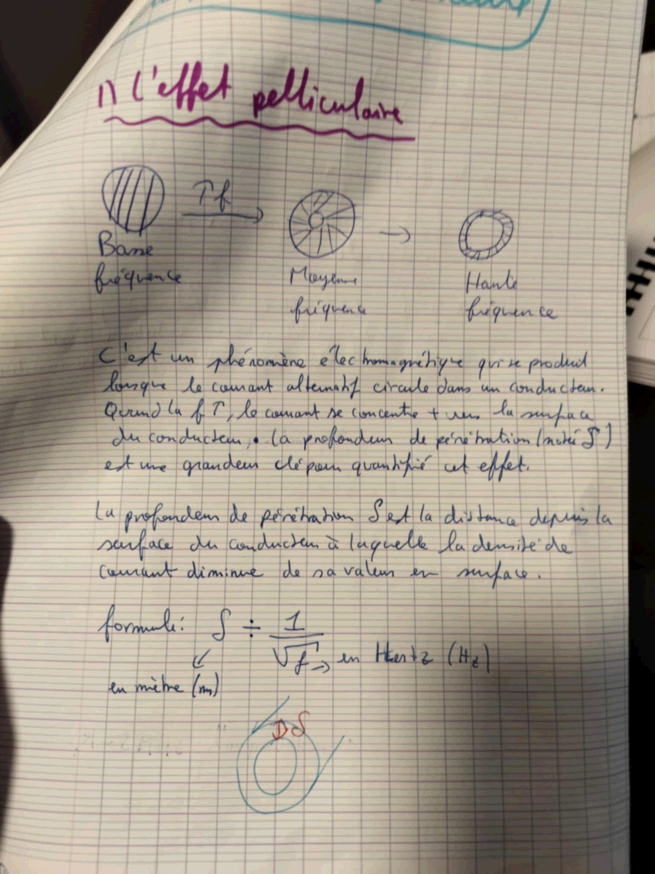 1) L'effet pelliculaire
↑f
Basse
fréquence
→
Moyenne
fréquence
Haute
fréquence
C'est un phénomène électromagnétique qui se produit
lorsque le courant alternatif circule dans un conducteur.
Quand la f↑, le courant se concentre + vers la surface
du conducteur. La profondeur de pénétration (notée δ)
est une grandeur clé pour quantifié cet effet.
La profondeur de pénétration δ est la distance depuis la
surface du conducteur à laquelle la densité de
courant diminue de sa valeur en surface.
formule: δ ÷ 1/√f → en Hertz (Hz)
en mètre (m)
δ